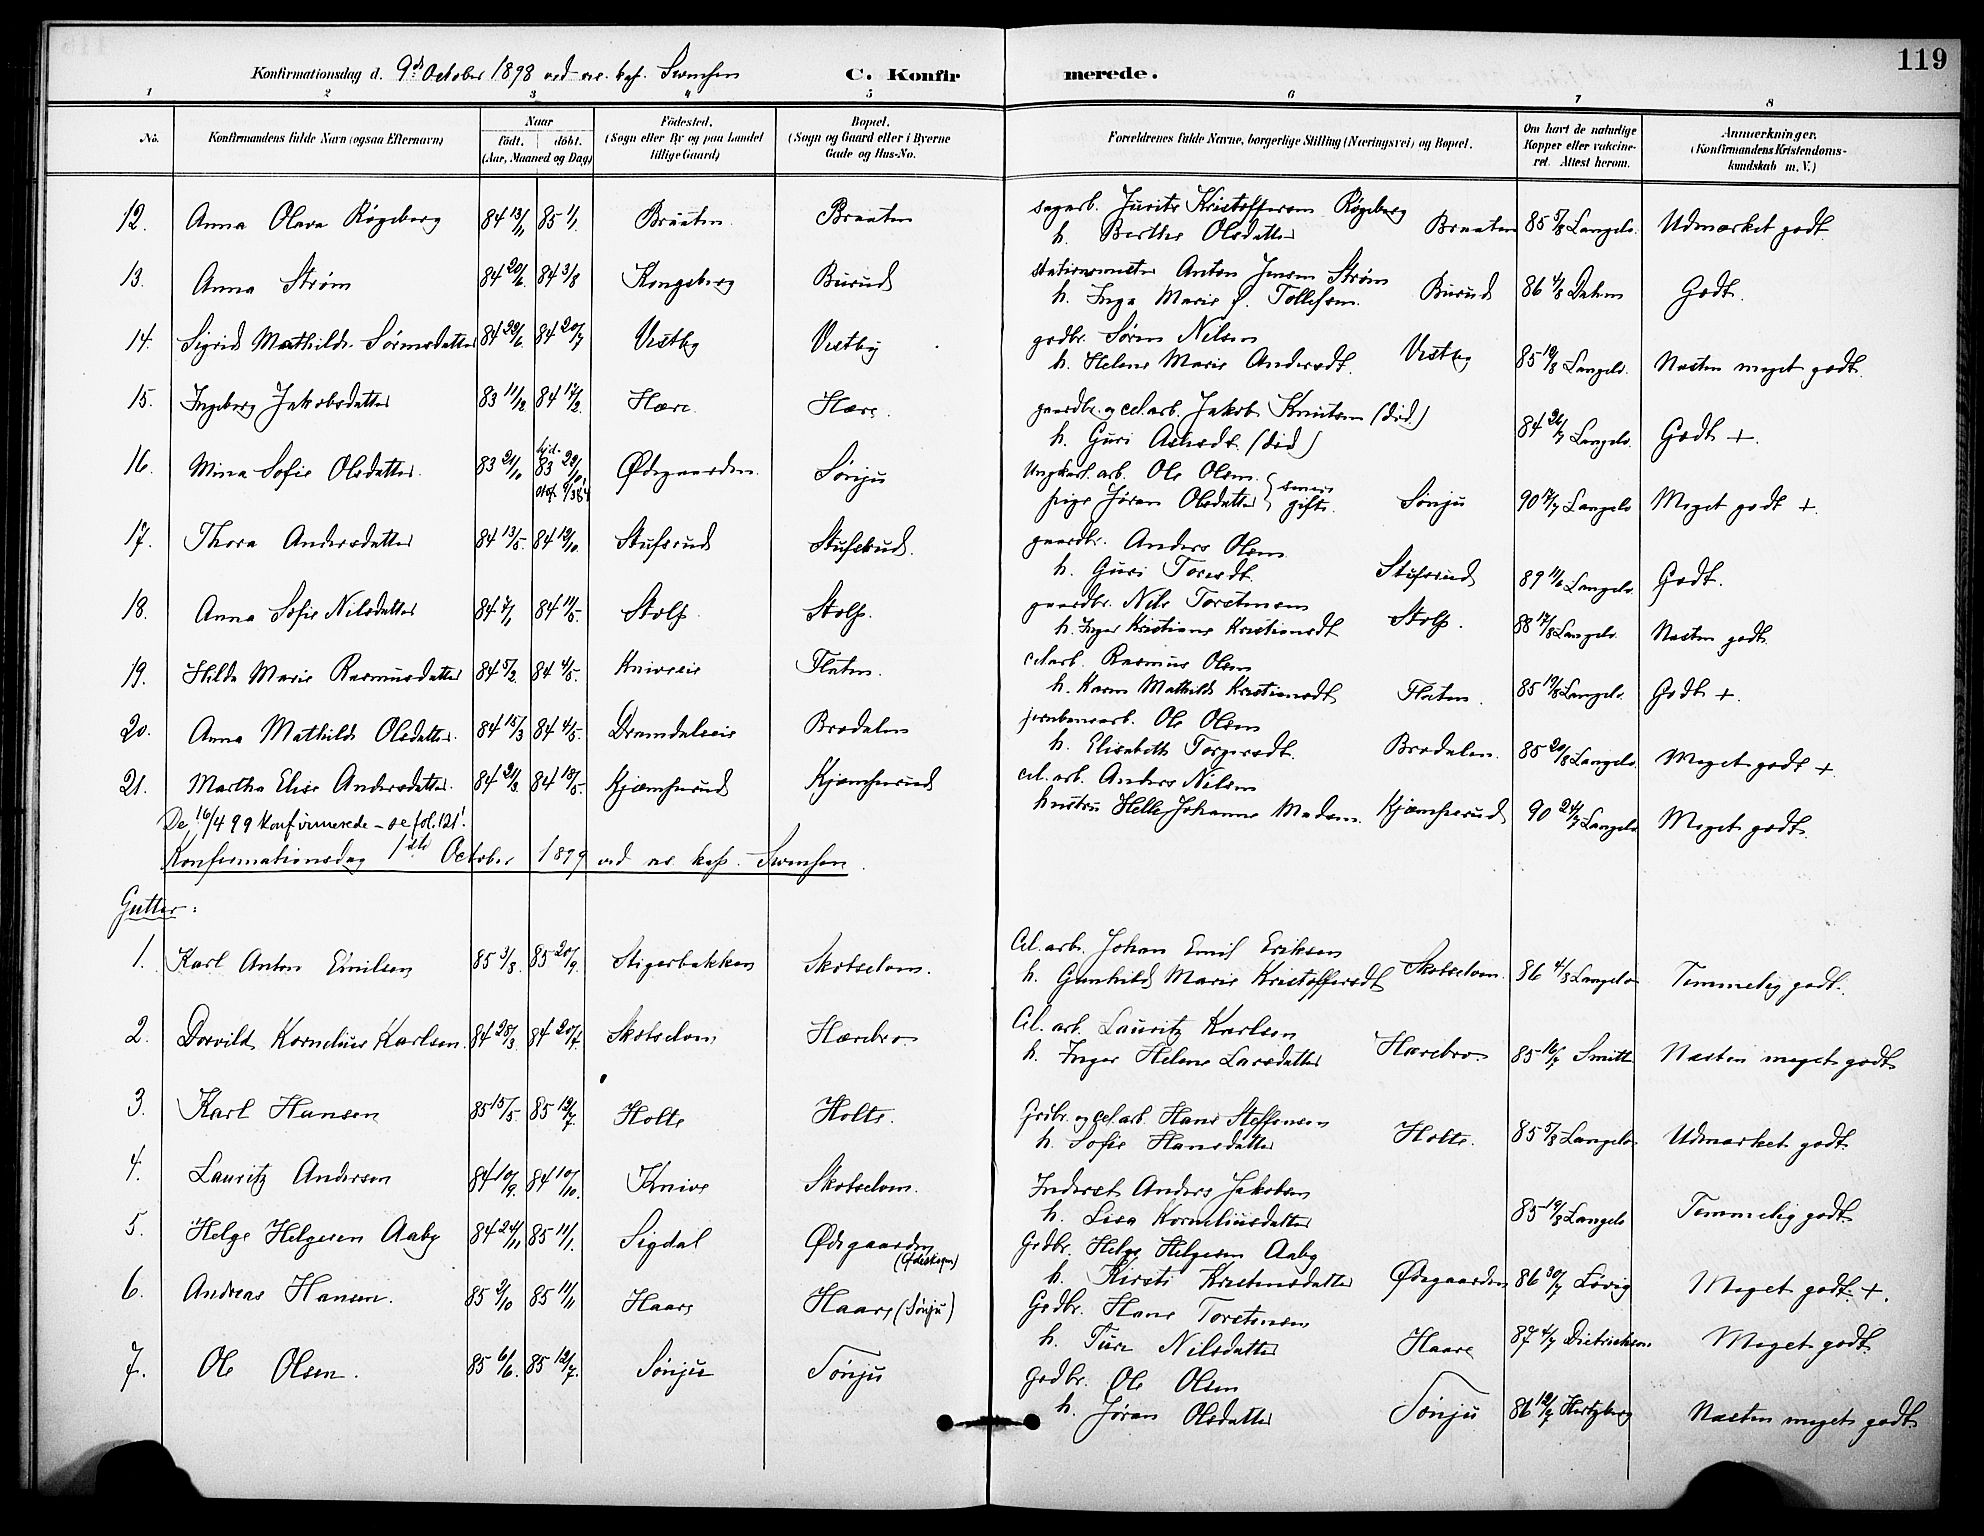 119
Konfirmationsdag d. 9de October 1898 ved res. kap. Svensen C. Konfirmerede.
1 2 3 4 5 6 7 8
No. Konfirmandens fulde Navn (ogsaa Efternavn) Naar født. døbt. (Aar, Maaned og Dag) Födested. (Sogn eller By og paa Landet tillige Gaard) Bopæl. (Sogn og Gaard eller i Byerne Gade og Hus-No. Forældrenes fulde Navne, borgerlige Stilling (Næringsvei) og Bopæl. Om havt de naturlige Kopper eller vakcineret. Attest herom. Anmærkninger. (Konfirmandens Kristendomskundskab m. V.)
12. Anna Olava Røgeberg 84 13/11 85 1/1 Braaten Braaten sagarb. Kristoffersen Røgeberg
h. Berthe Olsdatter Braaten 85 5/8 Langels. Udmærket godt.
13. Anna Strøm 84 20/6 84 3/8 Kongsberg Burud stationsmester Anton Jensen Strøm
h. Inga Marie f. Tollefsen Burud 86 4/8 Godt.
14. Sigrid Mathilde Sørensdatter 84 29/6 84 20/7 Vestby Vestby grdbr. Søren Nilsen
h. Helene Marie Andersdt. Vestby 85 19/8 Langels. Næsten meget godt.
15. Ingeborg Jakobsdatter 83 11/12 84 17/2 Hære. Hære. gaardbr. og cel.arb. Jakob Knutsen (død.)
h. Guri Aslesdt. (død) 84 26/7 Langels. Godt +.
16. Mina Sofie Olsdatter. 83 21/10 83 29/10 Ødegaarden. Sønju Ungkarl. arb. Ole Olsen.
pige Jøran Olsdatter senere gifte. Sønju 90 17/7 Langels Meget godt +.
17. Thora Andersdatter 84 13/5 84 19/10 Stufsrud Stufsrud. gaardbr. Anders Olsen
h. Guri Toresdt. Stufsrud 89 11/6 Langels. Godt.
18. Anna Sofie Nilsdatter 84 7/1 84 11/5 Stolp Stolp. gaardbr. Nils Torstensen
h. Inger Kristiane Kristiansdt Stolp. 88 17/8 Langels. Næsten godt.
19. Hilda Marie Rasmusdatter 84 5/2 84 4/5 Kniveeie Flaten. cel.arb. Rasmus Olsen
h. Karen Mathilde Kristiansdt Flaten. 85 19/8 Langels. Godt +.
20. Anna Mathilde Olsdatter. 84 15/3 84 4/5 Dramdalseie Bradalen jernbanearb. Ole Olsen
h. Elisabeth Torgersdt. Bradalen. 85 20/8 Langels. Meget godt +.
21. Martha Elise Andersdatter. 84 21/3 84 18/5 Kjæmperud Kjæmperud cel. arb. Anders Nilsen
hustru Helle Johanne Madsen. Kjæmperud 90 24/7 Langels Meget godt.
De 16/4 99 konfirmerede – se fol. 121!
Konfirmationsdag 1ste October 1899 ved res. kap. Svensen.
Gutter:
1. Karl Anton Emilsen 85 3/8. 85 20/9. Stigerbakken Skotselven. Cel. arb. Johan Emil Eriksen
h. Gunhild Marie Kristoffersdt Skotselven. 86 4/8 Langels Temmelig godt.
2. Dorvild Kornelius Karlsen. 84 28/3. 84 20/7. Skotselven Hærebro. Cel. arb. Lauritz Karlsen
h. Inger Helene Larsdatter Hærebro. 85 16/7 Smitt Næsten meget godt
3. Karl Hansen 85 15/5. 85 19/7 Holte Holte. Grdbr. og cel.arb. Hans Steffensen
h. Sofie Hansdatter Holte. 85 5/8 Langels. Udmærket godt.
4. Lauritz Andersen 84 10/9. 84 10/10. Knive Skotselven. Inderst Anders Jakobsen
h. Lisa Korneliusdatter 85 19/8 Langels Temmelig godt
5. Helge Helgesen Aaby 84 24/11 85 11/1. Sigdal Ødegaarden Grdbr. Helge Helgesen Aaby
h. Kirsti Kristensdatter Ødegaarden 86 30/7 Lövig Meget godt. +.
6. Andreas Hansen. 85 2/10 85 11/11 Haare Haare (Sønju) Grdbr. Hans Torstensen
h. Turi Nilsdatter Haare 87 4/7 Dietrichson Meget godt.
7. Ole Olsen. 85 6/6. 85 12/7. Sønju Sønju Grdbr. Ole Olsen
h. Jøran Olsdatter Sønju 86 19/7 Hertzberg Næsten meget godt